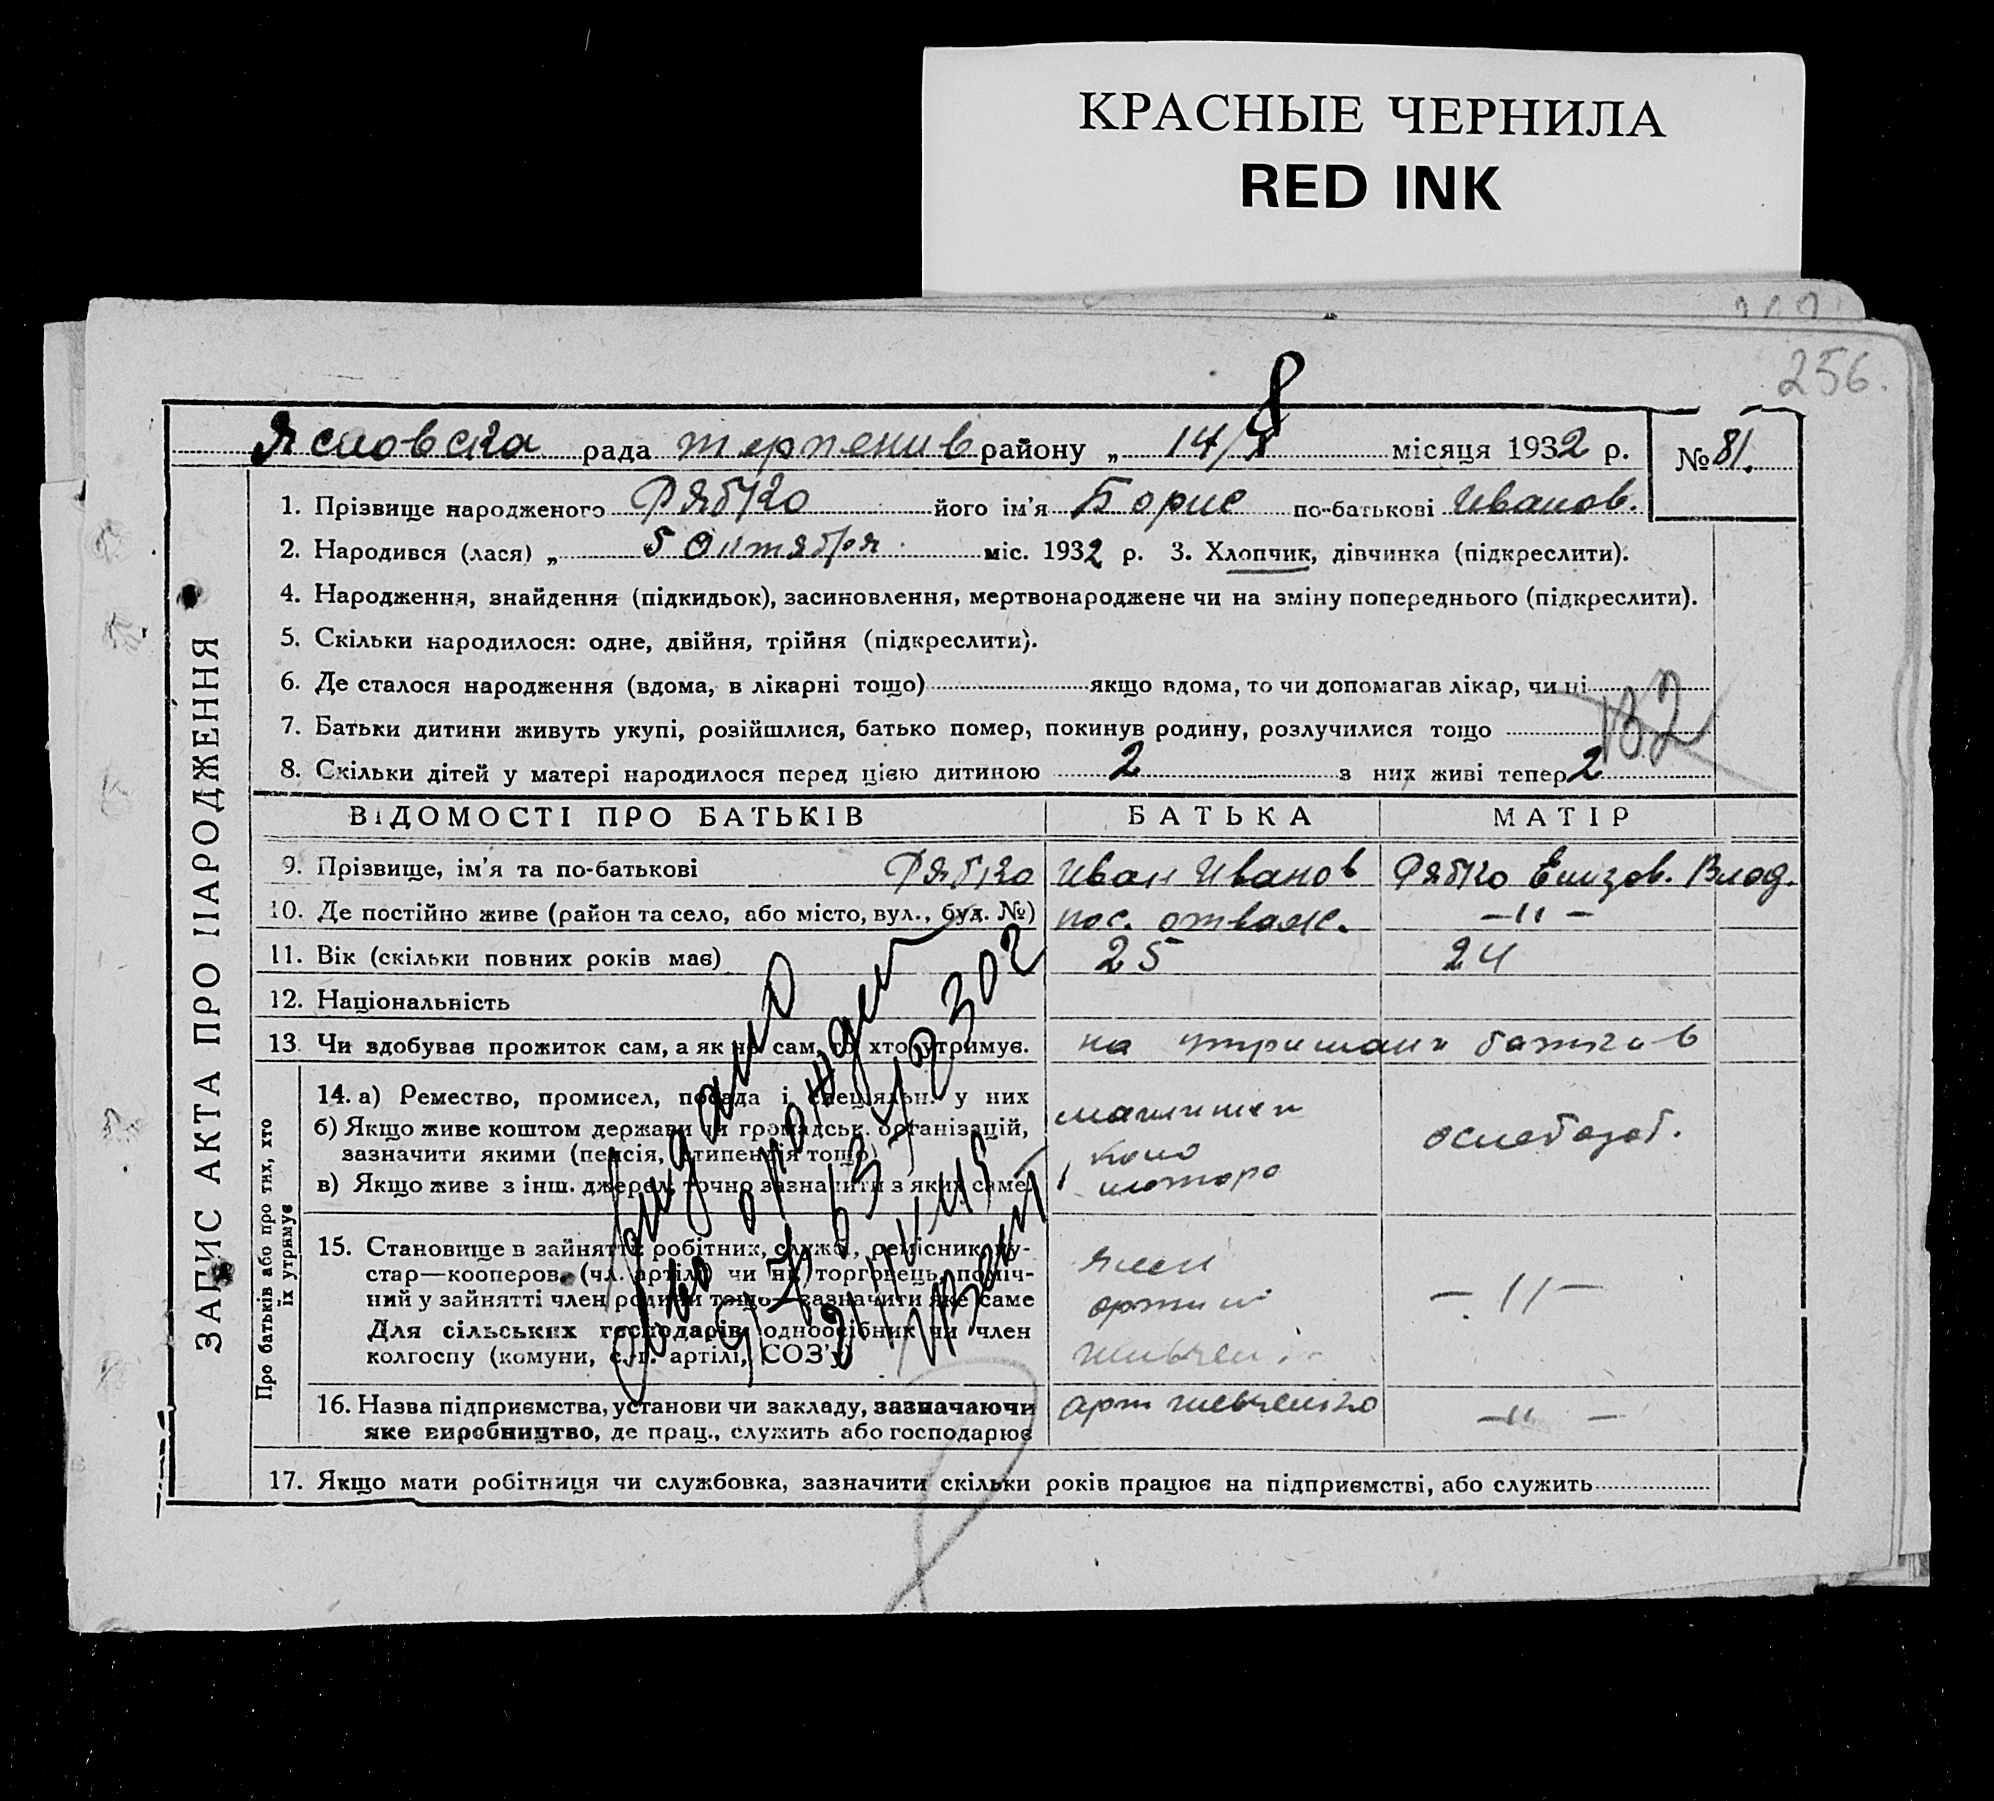 КРАСНЫЕ ЧЕРНИЛА
RED INK
256.
рада района „ 14/ місяця 1932 р. № 81.
1. Прізвище народженого Рябко його ім'я Борис по-батькові Иванов.
2. Народився (лася) „ 5 Октября міс. 1932 р. 3. Хлопчик, дівчинка (підкреслити).
4. Народження, знайдення (підкидьок), засиновлення, мертвонароджене чи на зміну попереднього (підкреслити).
5. Скільки народилося: одне, двійня, трійня (підкреслити).
6. Де сталося народження (вдома, в лікарні тощо) якщо вдома, то чи допомагав лікар, чи ні
132
7. Батьки дитини живуть укупі, розійшлися, батько помер, покинув родину, розлучилися тощо
8. Скільки дітей у матері народилося перед цією дитиною 2 з них живі тепер 2
ВІДОМОСТІ ПРО БАТЬКІВ БАТЬКА МАТІР
9. Прізвище, ім'я та по-батькові Рябко Иван Иванов Рябко Елизов. Влад.
10. Де постійно живе (район та село, або місто, вул., буд. №) пос. отваж. —"—
11. Вік (скільки повних років має) 25 24
12. Національність
13. Чи здобуває прожиток сам, а як не сам, то хто утримує. на утримани батьків
14. а) Ремество, промисел, посада і спеціяльн. у них
б) Якщо живе коштом держави чи громадськ. організацій,
зазначити якими (пенсія, стипендія тощо)
в) Якщо живе з інш. джерел, точно зазначити з яких саме.
15. Становище в зайнятті: робітник, службов., ремісник, ку-
стар—кооперов. (чл. артілі) чи ні, торговець, поміч-
ний у зайнятті член родини тощо—зазначити яке саме
Для сільських господарів: одноосібник чи член
колгоспу (комуни, с.-г. артілі, СОЗ'у)
—"—
16. Назва підприємства, установи чи закладу, зазначаючи
яке виробництво, де прац., служить або господарює
арт шевченко —"—
17. Якщо мати робітниця чи службовка, зазначити скільки років працює на підприємстві, або служить
ЗАПИС АКТА ПРО НАРОДЖЕННЯ
Про батьків або про тих, хто
їх утримує
Выдано